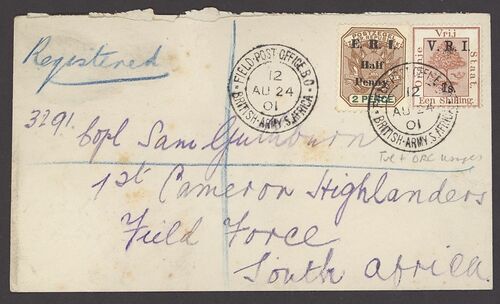 Registered
FIELD·POST OFFICE.B.O
12
AU 24
01
BRITISH·ARMY.S.AFRICA
E. R. I.
Half
Penny
2 PENCE
Vrij
Staat.
V. R. I.
1s.
Een Shilling.
12
AU 24
01
BRITISH·ARMY.S.AFRICA
3291. Copl Sam
1st Cameron Highlanders
Field Force
South Africa